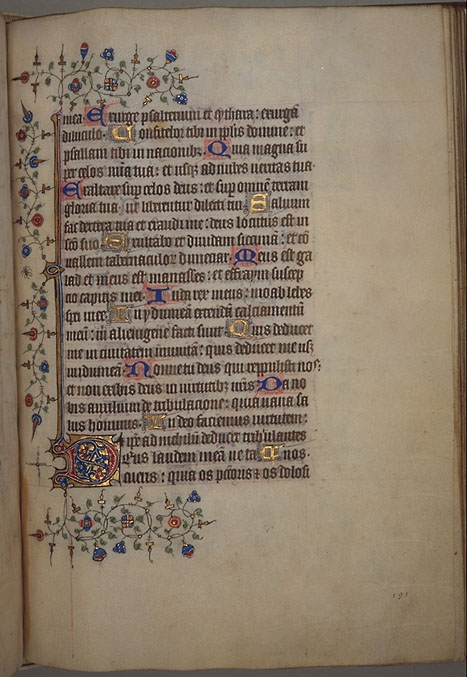 mea. Exurge psalterium et cythara: exurgā
diluculo. Confitebor tibi in pplis domine: et
psallam tibi in nacionibz. Quia magna su
per celos mīa tua: et usqz ad nubes veritas tua
Exaltare sup celos deus: et sup omnē terram
gloria tua: ut liberentur dilecti tui. Salvum
fac dextera tua et exaudi me: deus locutus est in
scō suo Exultabo et dividam sicimā: et cō
vallem tabernaculor dimeciar. Meus est ga
laad et meus est manasses: et effraym suscep
cio capitis mei. Iuda rex meus: moab lebes
spei mee. In ydumeā extendā calciamentū
meū: m alienigene facti sunt. Quis deducet
me in civitatem munitā: quis deducet me usqz
in idumeā. Nonne tu deus qui reppulisti nos:
et non exibis deus in virtutibz nr̄is. Da no
bis auxilium de tribulacione: quia vana sa
lus hominis. In deo faciemus virtutem:
et ipe ad nichilū deducet tribulantes
Deus laudem meā ne ta nos.
cueris: quia os pctoris & os dolosi